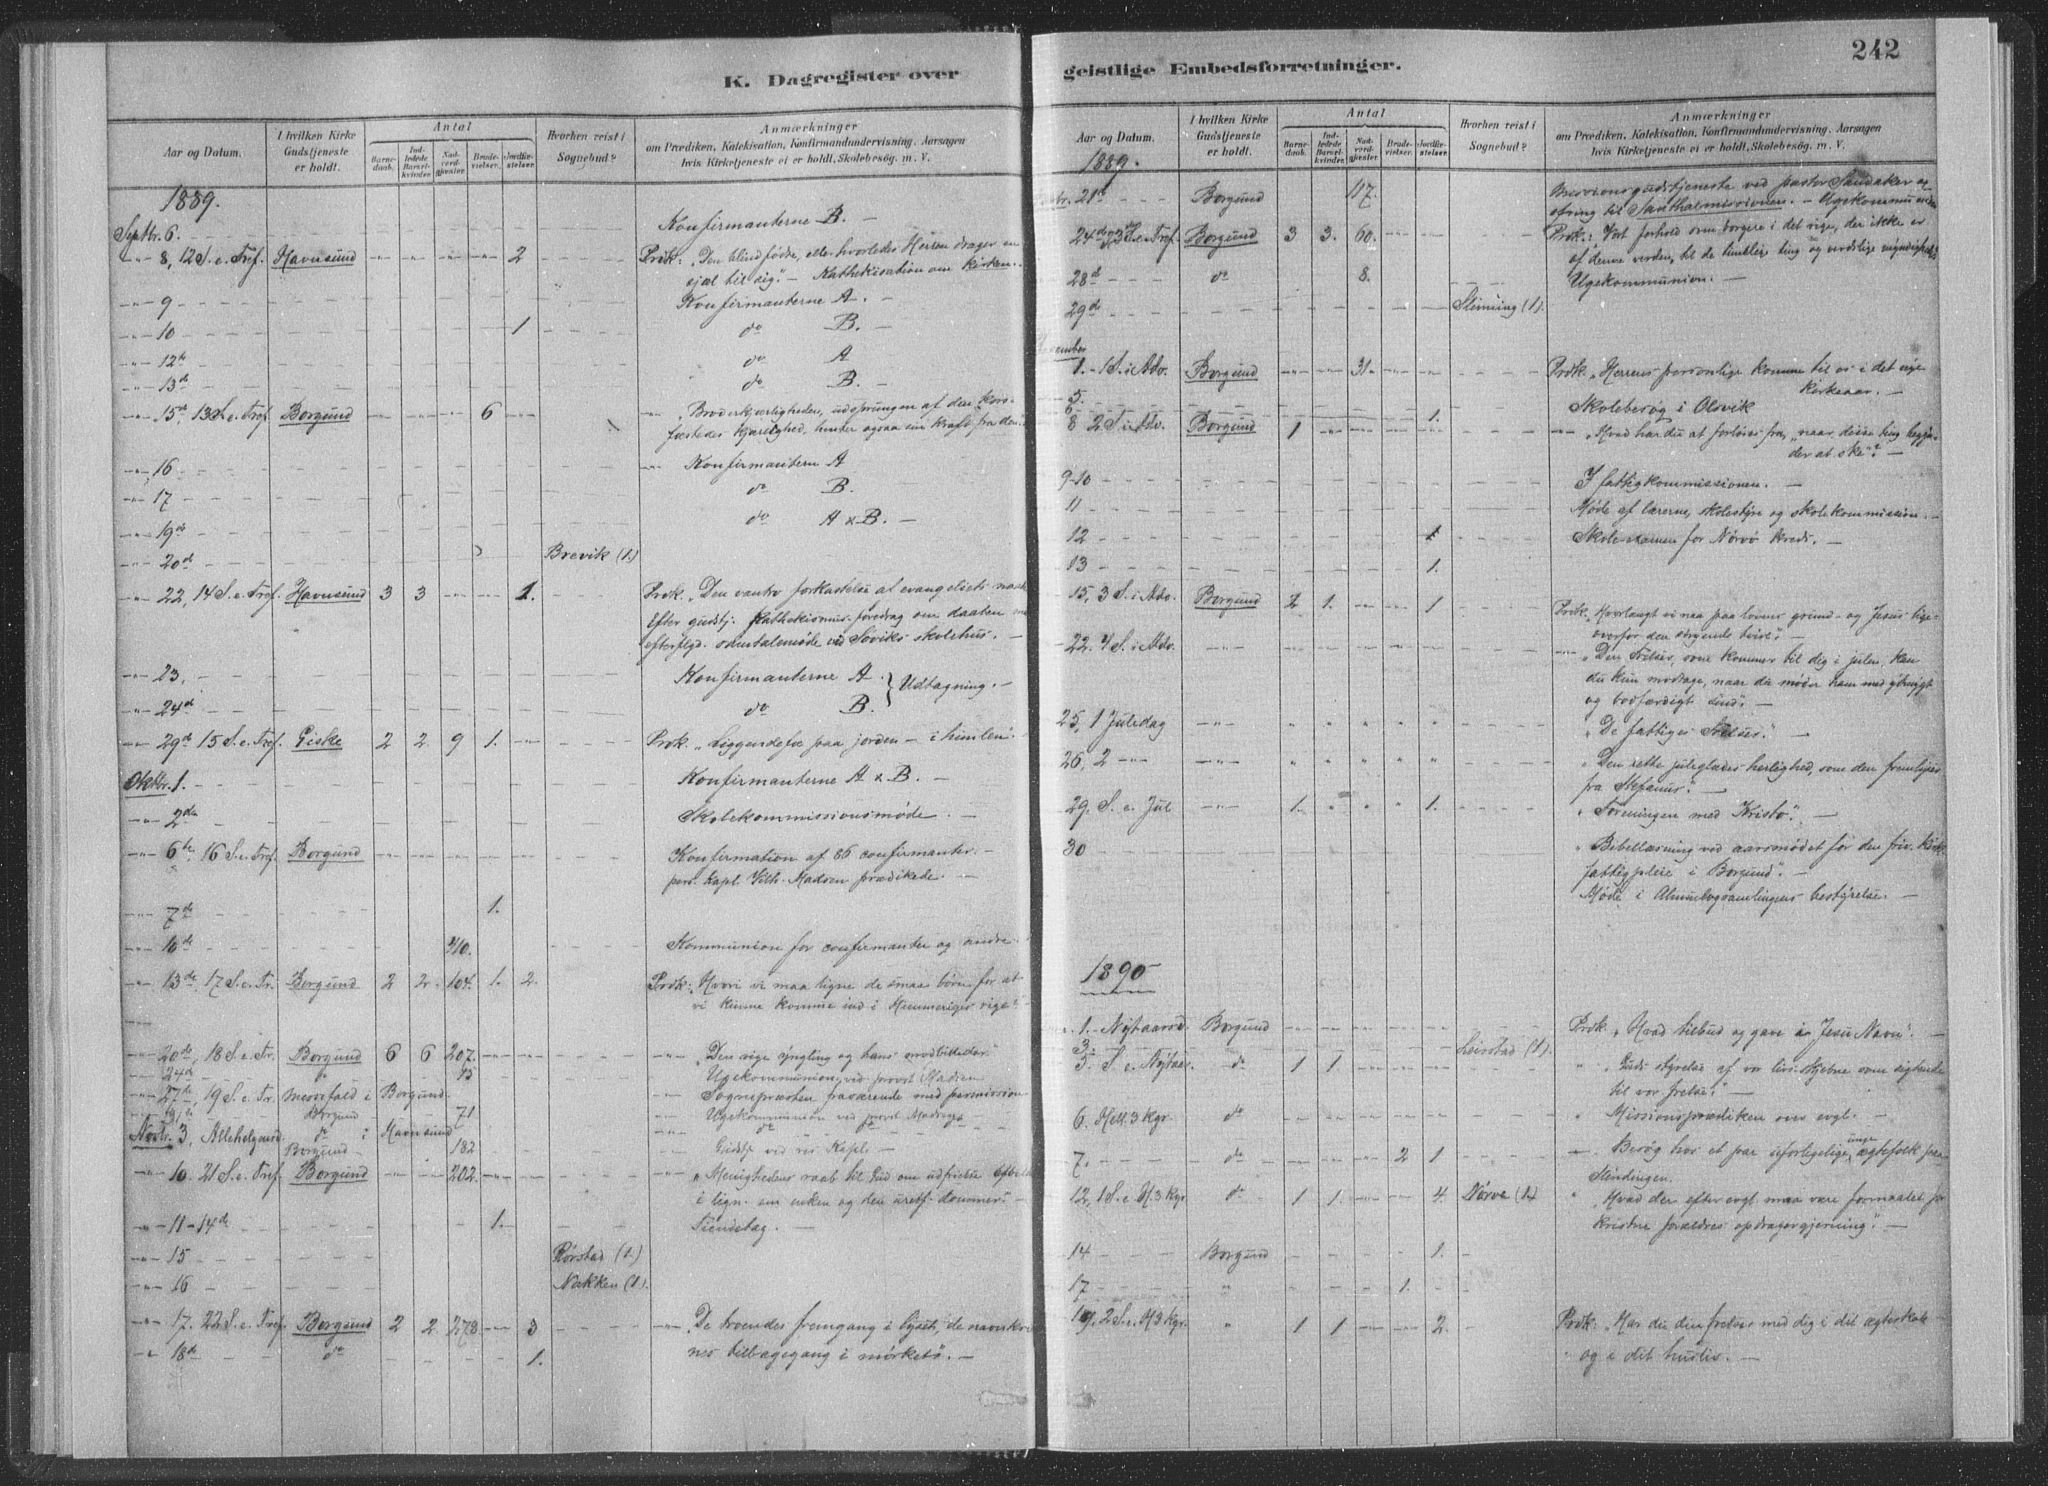 242
K. Dagregister over
geistlige Embedsforretninger.
Aar og Datum.
I hvilken Kirke Gudstjeneste er holdt.
Antal
Barnedaab.
Indledede Barselkvinder
Nadverdgjester
Brudevielser.
Jordfæstelser.
Hvorhen reist i Sognebud?
Anmærkninger
om Prædiken, Katekisation, Konfirmandundervisning. Aarsagen
hvis Kirketjeneste ei er holdt. Skolebesøg. m. V.
1889.
Septbr. 6. Konfirmanterne B. —
"— 8, 12 S. e. Tref. Havnsund 2 Præk: "Den blindfødte, eller hvorledes Herren drager en
sjæl til sig". — Kathekisation om kirken.
"— 9 Konfirmanterne A. —
"— 10 1 do B. —
"— 12te do A
"— 13de do B. —
"— 15de, 13 S. e. Tref. Borgund 6 "Broderkjærligheden, udsprungen af den Kors-
fæstedes kjærlighed, henter ogsaa sin kraft fra den.
"— 16 Konfirmanterne A
"— 17 do B.
"— 19de do A & B. —
"— 20de Brevik (1.)
"— 22, 14 S. e. Tref. Havnsund 3 3 1. Præk. "Den vantro forkastelse af evangeliets
Efter gudstj. Kathekismus-foredrag om daaben
efterflgd. samtalemøde ved Søviks skolehus. —
"— 23, Konfirmanterne A. Udtagning. —
"— 24de do B.
"— 29de 15 S. e. Tref. Giske 2 2 9 1. Præk. "Liggendefæ paa jorden — i himlen".
Oktbr. 1. Konfirmanterne A & B. —
"— 2den Skolekommissionsmøde. —
"— 6te, 16 S. e. Tref. Borgund Konfirmation af 86 confirmanter. —
pers. kapl. Vilh. Madsen prædikede. —
"— 7de 1.
"— 10de 210. Kommunion for confirmanter og andre.
"— 13de, 17 S. e. Tr. Borgund 2 2. 104. 1. 2. Præk: "Hvori vi maa ligne de smaa børn for at
vi kunne komme ind i Himmeriges rige?"
"— 20de, 18 S. e. Tr. Borgund 6 6 207. "Den rige yngling og hans modbilleder".
"— 24de 15 Ugekommunion, ved provst Madsen
"— 27de, 19 S. e. Tr. Messefald i Borgund. Sognepræsten fraværende med permission
Borgund 71 Ugekommunion ved provst Madsen
Novbr. 3, Allehelgensd. do i Havnsund do
Borgund 182 Gudstj. ved res. Kapl.
"— 10. 21 S. e. Tref. Borgund 202. "Menighedens raab til Gud om udfrielse
i lign. om enken og den uretf. dommer".
"— 11-14de 1. Tiendetag. —
"— 15 Rørstad (1.)
"— 16 Nakken (1).
"— 17. 22 S. e. Tref. Borgund 2 2. 278 3 "De troendes fremgang i lyset, de navnkrist-
nes tilbagegang i mørket".
" 18de do 1.
Aar og Datum.
I hvilken Kirke Gudstjeneste er holdt.
Antal
Barnedaab.
Indledede Barselkvinder
Nadverdgjester
Brudevielser.
Jordfæstelser.
Hvorhen reist i Sognebud?
Anmærkninger
om Prædiken, Katekisation, Konfirmandundervisning. Aarsagen
hvis Kirketjeneste ei er holdt. Skolebesøg. m. V.
1889.
21de Borgund 117. Missionsgudstjeneste ved pastor Sandaker
ofring til Santhalmissionen. — Ugekommunion
24de, 23 S. e. Tref. Borgund 3 3. 60. Præk.: Vort forhold som borgere i det rige, der ikke er
af denne verden, til de timelige ting og verdslige myndigheder
28de do 8. Ugekommunion. —
29de Sleining (1).
December
1. 1 S. i Adv. Borgund 31. Præk. "Herrens personlige komme til os i det nye
Kirkeaar. —
5. Skolebesøg i Olsvik
6 1.
8 2 S. i Adv. Borgund 1 "Hvad har du at forløses fra, "naar disse ting begyn-
der at ske"? —
9-10 I fattigkommissionen. —
11 Møde af lærerne, skolestyre og skolekommission. —
12 1 Skoleexamen for Nørvø kreds. —
13 1.
15, 3 S. i Adv. Borgund 2 1. 1 Præk. "Hvorlangt vi naa paa lovens grund — og Jesus lige-
overfor den sørgende tvivl". —
22. 4 S. i Adv. "Den Frelser, som kommer til dig i julen, kan
du kun modtage, naar du møder ham med ydmygt
og bodfærdigt sind".
25, 1 Juledag "De fattiges Frelser". —
26, 2 "Den rette juleglædes herlighed, som den fremlyser
fra Stefanus". —
29. S. e. Jul 1. 1. "Foreningen med Kristo". —
30 "Bibellæsning ved aarsmødet for den friv. kirk.
fattigpleie i Borgund". —
Møde i Almuebogsamlingens bestyrelse. —
1890
1. Nytaarsd. Borgund Præk. "Hvad tilbud og gave i Jesu Navn". —
3. Leirstad (1).
5. S. e. Nytaar. do 1 1 "Guds styrelse af vor livs-skjebne som sigtende
til vor frelse".
6. Hell. 3 Kgr. do "Missionsprædiken over evgl. —
7. do 2 1 Besøg hos et par uforligelige unge ægtefolk paa
Slindingen.
12, 1 S. e. H. 3 Kgr. do 1 1 4. Nørve (1.) "Hvad der efter evgl. maa være formaalet for
kristne forældres opdragergjerning". —
14 Borgund 1.
17 " 1.
19. 2 S. e. H. 3 Kgr. " 1 1 2. Præk. "Har du din frelser med dig i dit ægteskab
og i dit husliv. —